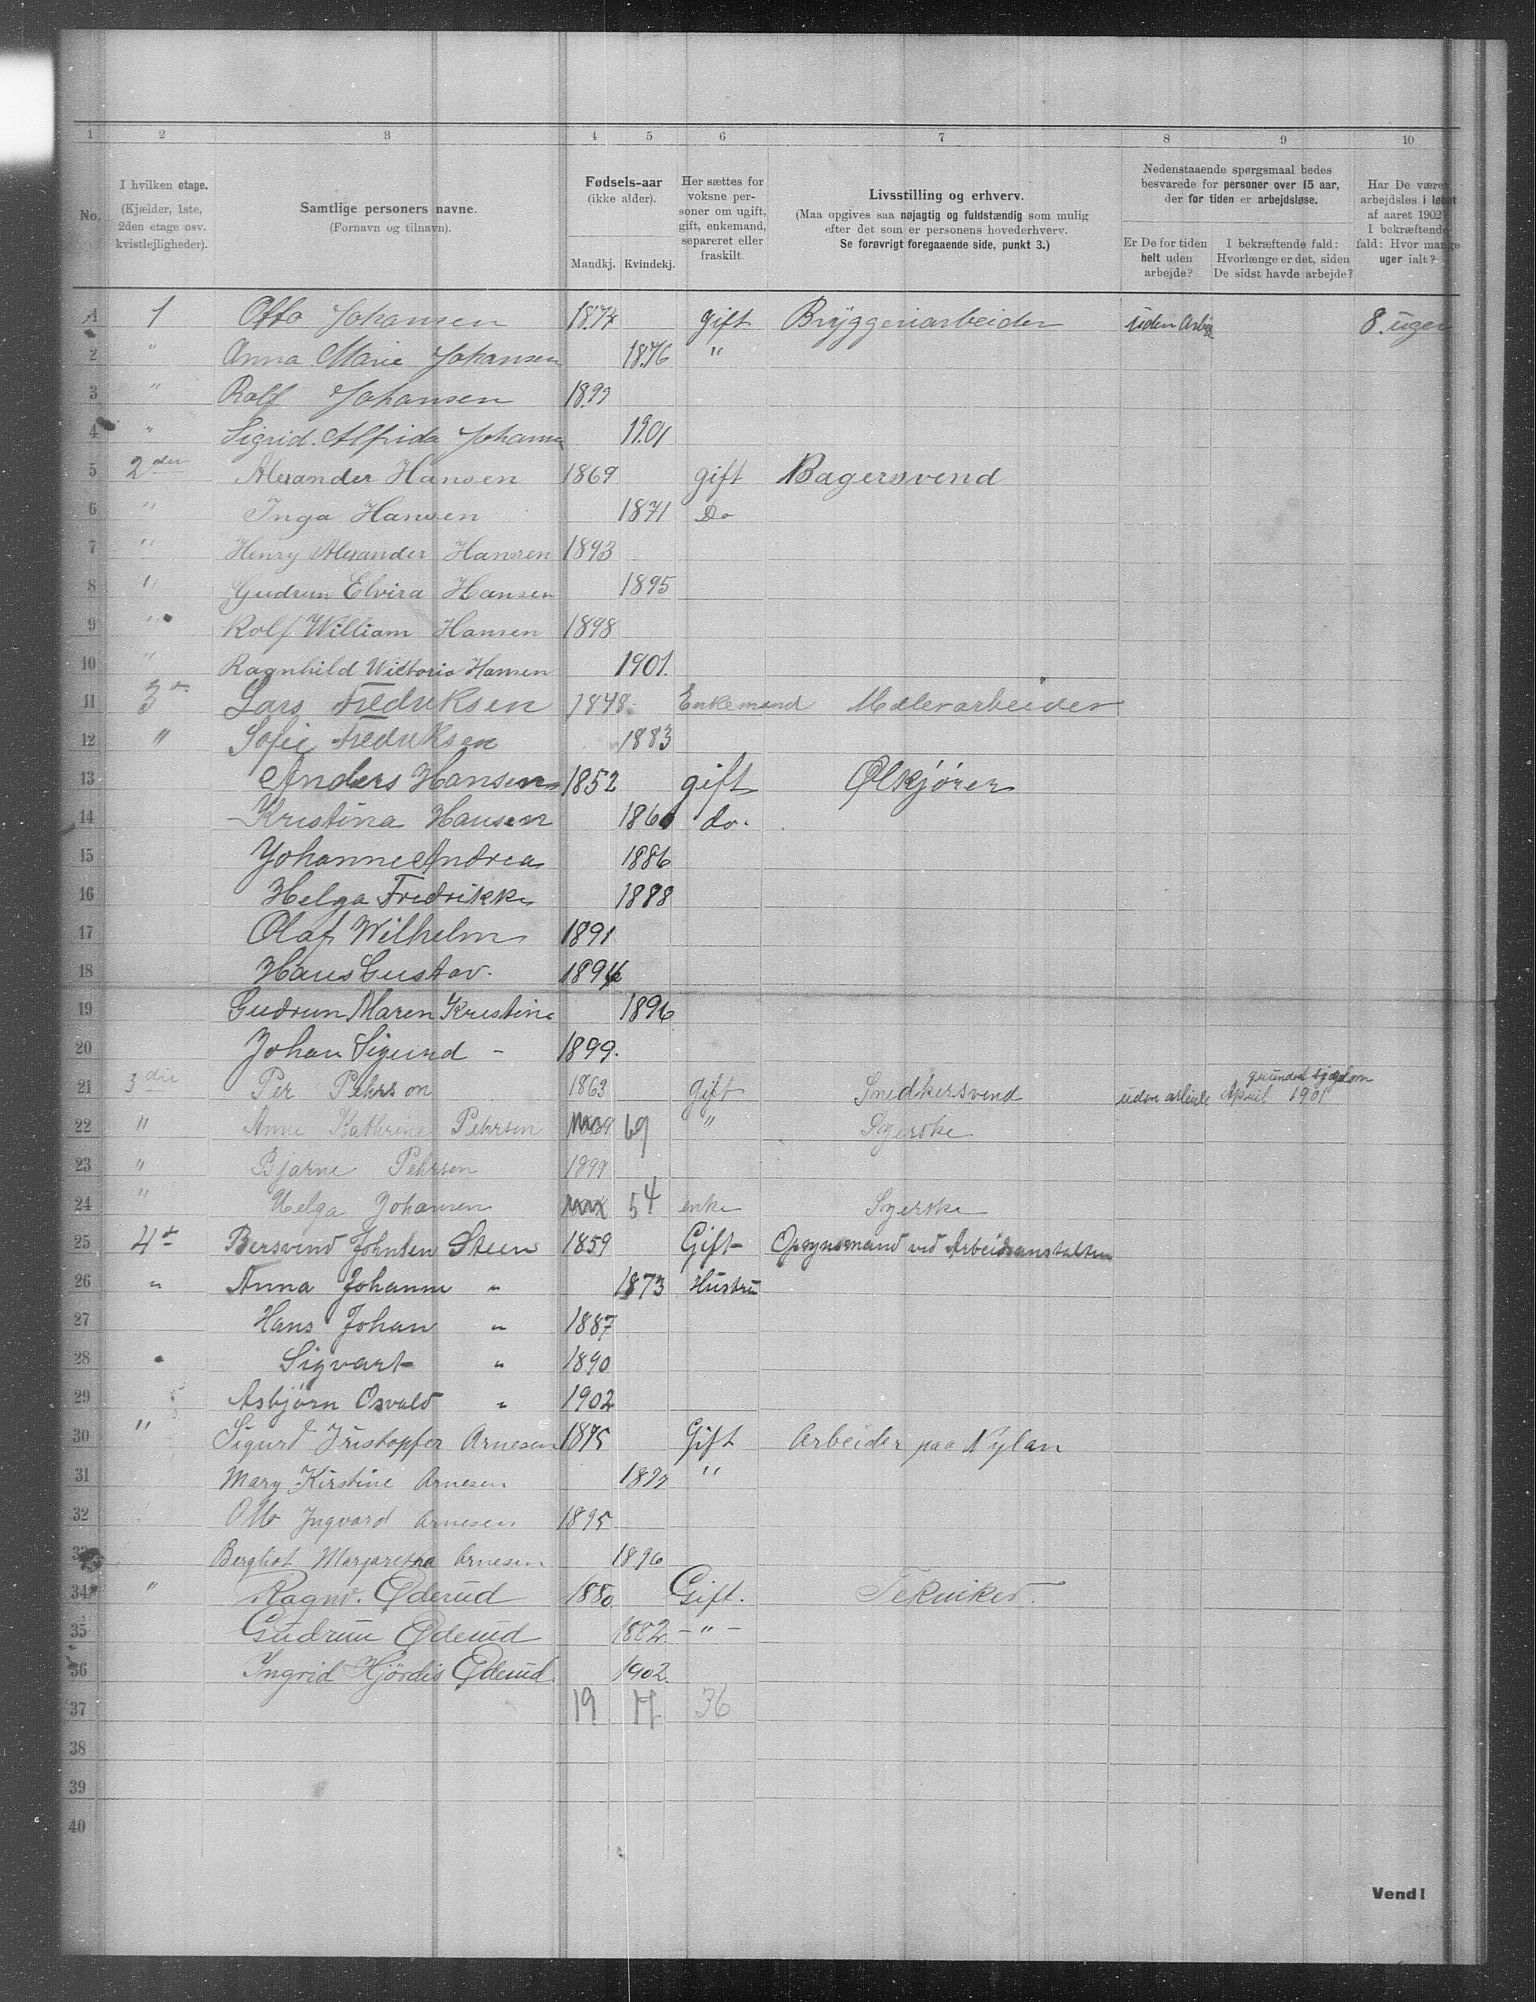 1 2 3 4 5 6 7 8 9 10
No.
I hvilken etage.
(Kjælder, 1ste,
2den etage osv.
kvistlejligheder).
Samtlige personers navne.
(Fornavn og tilnavn).
Fødsels-aar
(ikke alder).
Mandkj. Kvindekj.
Her sættes for
voksne per-
soner om ugift,
gift, enkemand,
separeret eller
fraskilt.
Livsstilling og erhverv.
(Maa opgives saa nøjagtig og fuldstændig som mulig
efter det som er personens hovederhverv.
Se forøvrigt foregaaende side, punkt 3.)
Nedenstaaende spørgsmaal bedes
besvarede for personer over 15 aar,
der for tiden er arbejdsløse.
Er De for tiden
helt uden
arbejde?
I bekræftende fald:
Hvorlænge er det, siden
De sidst havde arbejde?
Har De været
arbejdsløs i løbet
af aaret 1902?
I bekræftende
fald: Hvor mange
uger ialt?
1 1 Otto Johansen 1874 gift Bryggeriarbeider uden Arbei 8. uger
2 " Anna Marie Johansen 1876 "
3 " Rolf Johansen 1899
4 " Sigrid. Alfrida Johansen 1901
5 2den Alexander Hansen 1869 gift Bagersvend
6 " Inga Hansen 1871 Do
7 " Henry Alexander Hansen 1893
8 " Gudrun Elvira Hansen 1895
9 " Rolf William Hansen 1898
10 " Ragnhild Wictoria Hansen 1901.
11 3 Lars Fredriksen 1848 Enkemand Malerarbeider
12 " Sofie Fredriksen 1883
13 Anders Hansen 1852 gift Ølkjører
14 Kristina Hansen 1860 do.
15 Johanne Andrea 1886
16 Helga Fredrikke 1888
17 Olaf Wilhelm 1891
18 Hans Gustav. 1894
19 Gudrun Maren Kristine 1896
20 Johan Sigurd - 1899.
21 3die Per Pehrson 1863 gift Snedkersvend uden arbeide April 1901 grundet sygdom
22 " Anne Kathrine Pehrson 69 " Syerske
23 " Bjarne Pehrson 1899
24 " Helga Johansen 54 enke Syerske
25 4de Bersvend Johnsen Steen 1859 Gift Opsynsmand ved Arbeidsanstalten
26 " Anna Johanne " 1873 Hustru
27 Hans Johan " 1887
28 Sigvart " 1890
29 Asbjørn Osvald " 1902
30 " Sigurd Kristopfer Arnesen 1875 Gift Arbeider paa Nylan
31 Mary Kirstine Arnesen "
32 Otto Ingvard Arnesen 1895
33 Bergliot Margaretha Arnesen 1896
34 " Ragnv. Øderud 1880 Gift. Tekniker.
35 Gudrun Øderud 1882 - " -
36 Ingrid Hjördis Øderud 1902.
37 19 17 36
38
39
40
Vend!